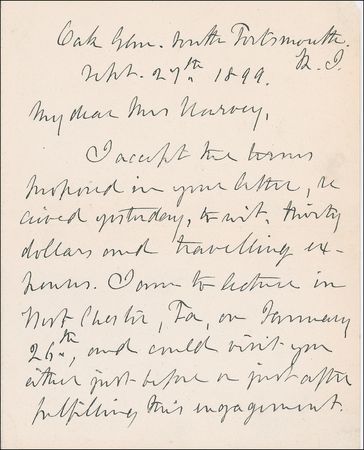 Oak Glen. South Portsmouth.
R. I.
Sept. 27th 1899.
My dear Mrs Harvey,
I accept the terms
proposed in your letter, re
ceived yesterday, to wit, thirty
dollars and travelling ex-
penses. I am to lecture in
West Chester, Pa, on January
26th, and could visit you
either just before or just after
fulfilling this engagement.